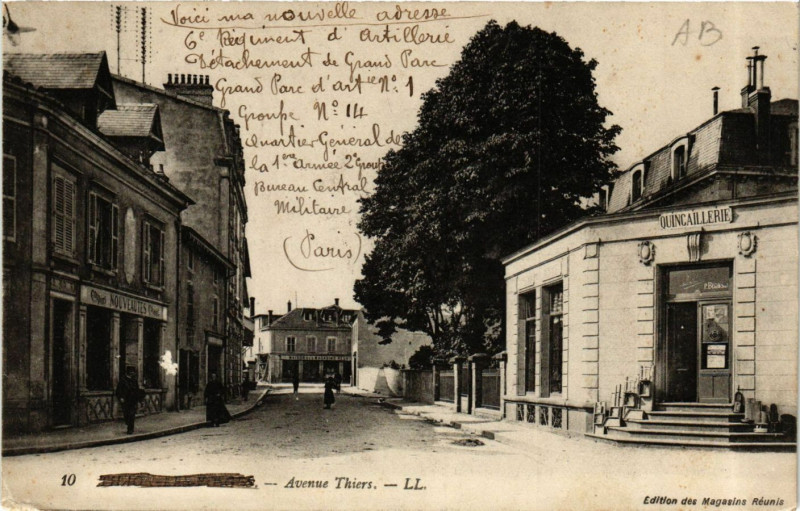 Voici ma nouvelle adresse
6e Régiment d'Artillerie
Détachement de Grand Parc
Grand Parc d'artie No. 1
Groupe No 14
Quartier Général de
la 1ère Armée 2e Groupe
Bureau Central
Militaire
(Paris)
AB
QUINCAILLERIE
NOUVEAUTÉS
10 — Avenue Thiers. — LL.
Edition des Magasins Réunis